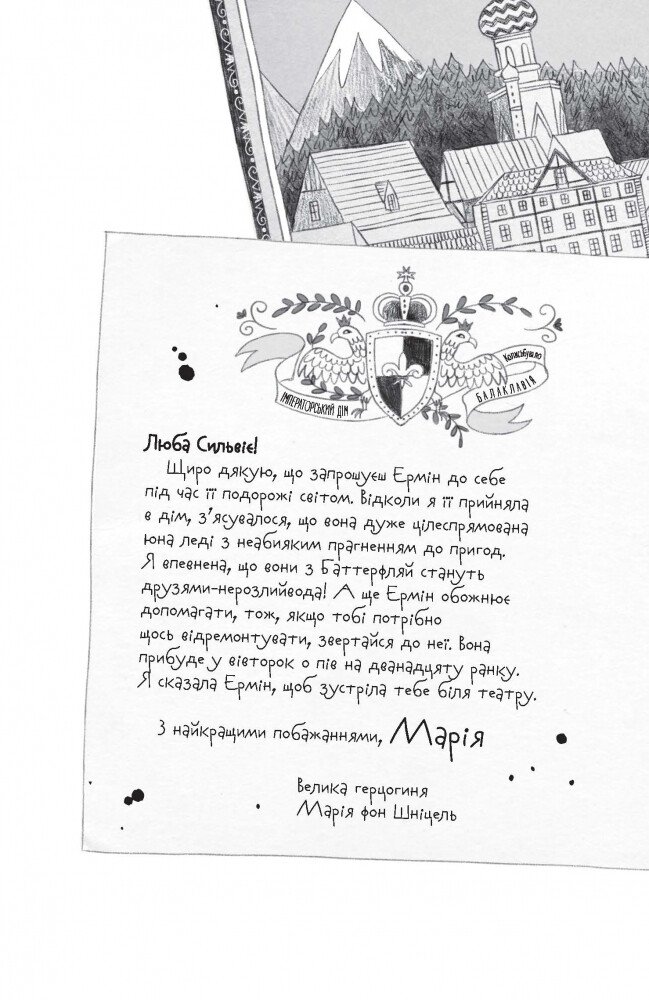 ІМПЕРАТОРСЬКИЙ ДІМ
Колисьбуло
БАЛАКЛАВІЯ
Люба Сильвіє!
Щиро дякую, що запрошуєш Ермін до себе
під час її подорожі світом. Відколи я її прийняла
в дім, з’ясувалося, що вона дуже цілеспрямована
юна леді з неабияким прагненням до пригод.
Я впевнена, що вони з Баттерфляй стануть
друзями-нерозлийвода! А ще Ермін обожнює
допомагати, тож, якщо тобі потрібно
щось відремонтувати, звертайся до неї. Вона
прибуде у вівторок о пів на дванадцяту ранку.
Я сказала Ермін, щоб зустріла тебе біля театру.
З найкращими побажаннями, Марія
Велика герцогиня
Марія фон Шніцель